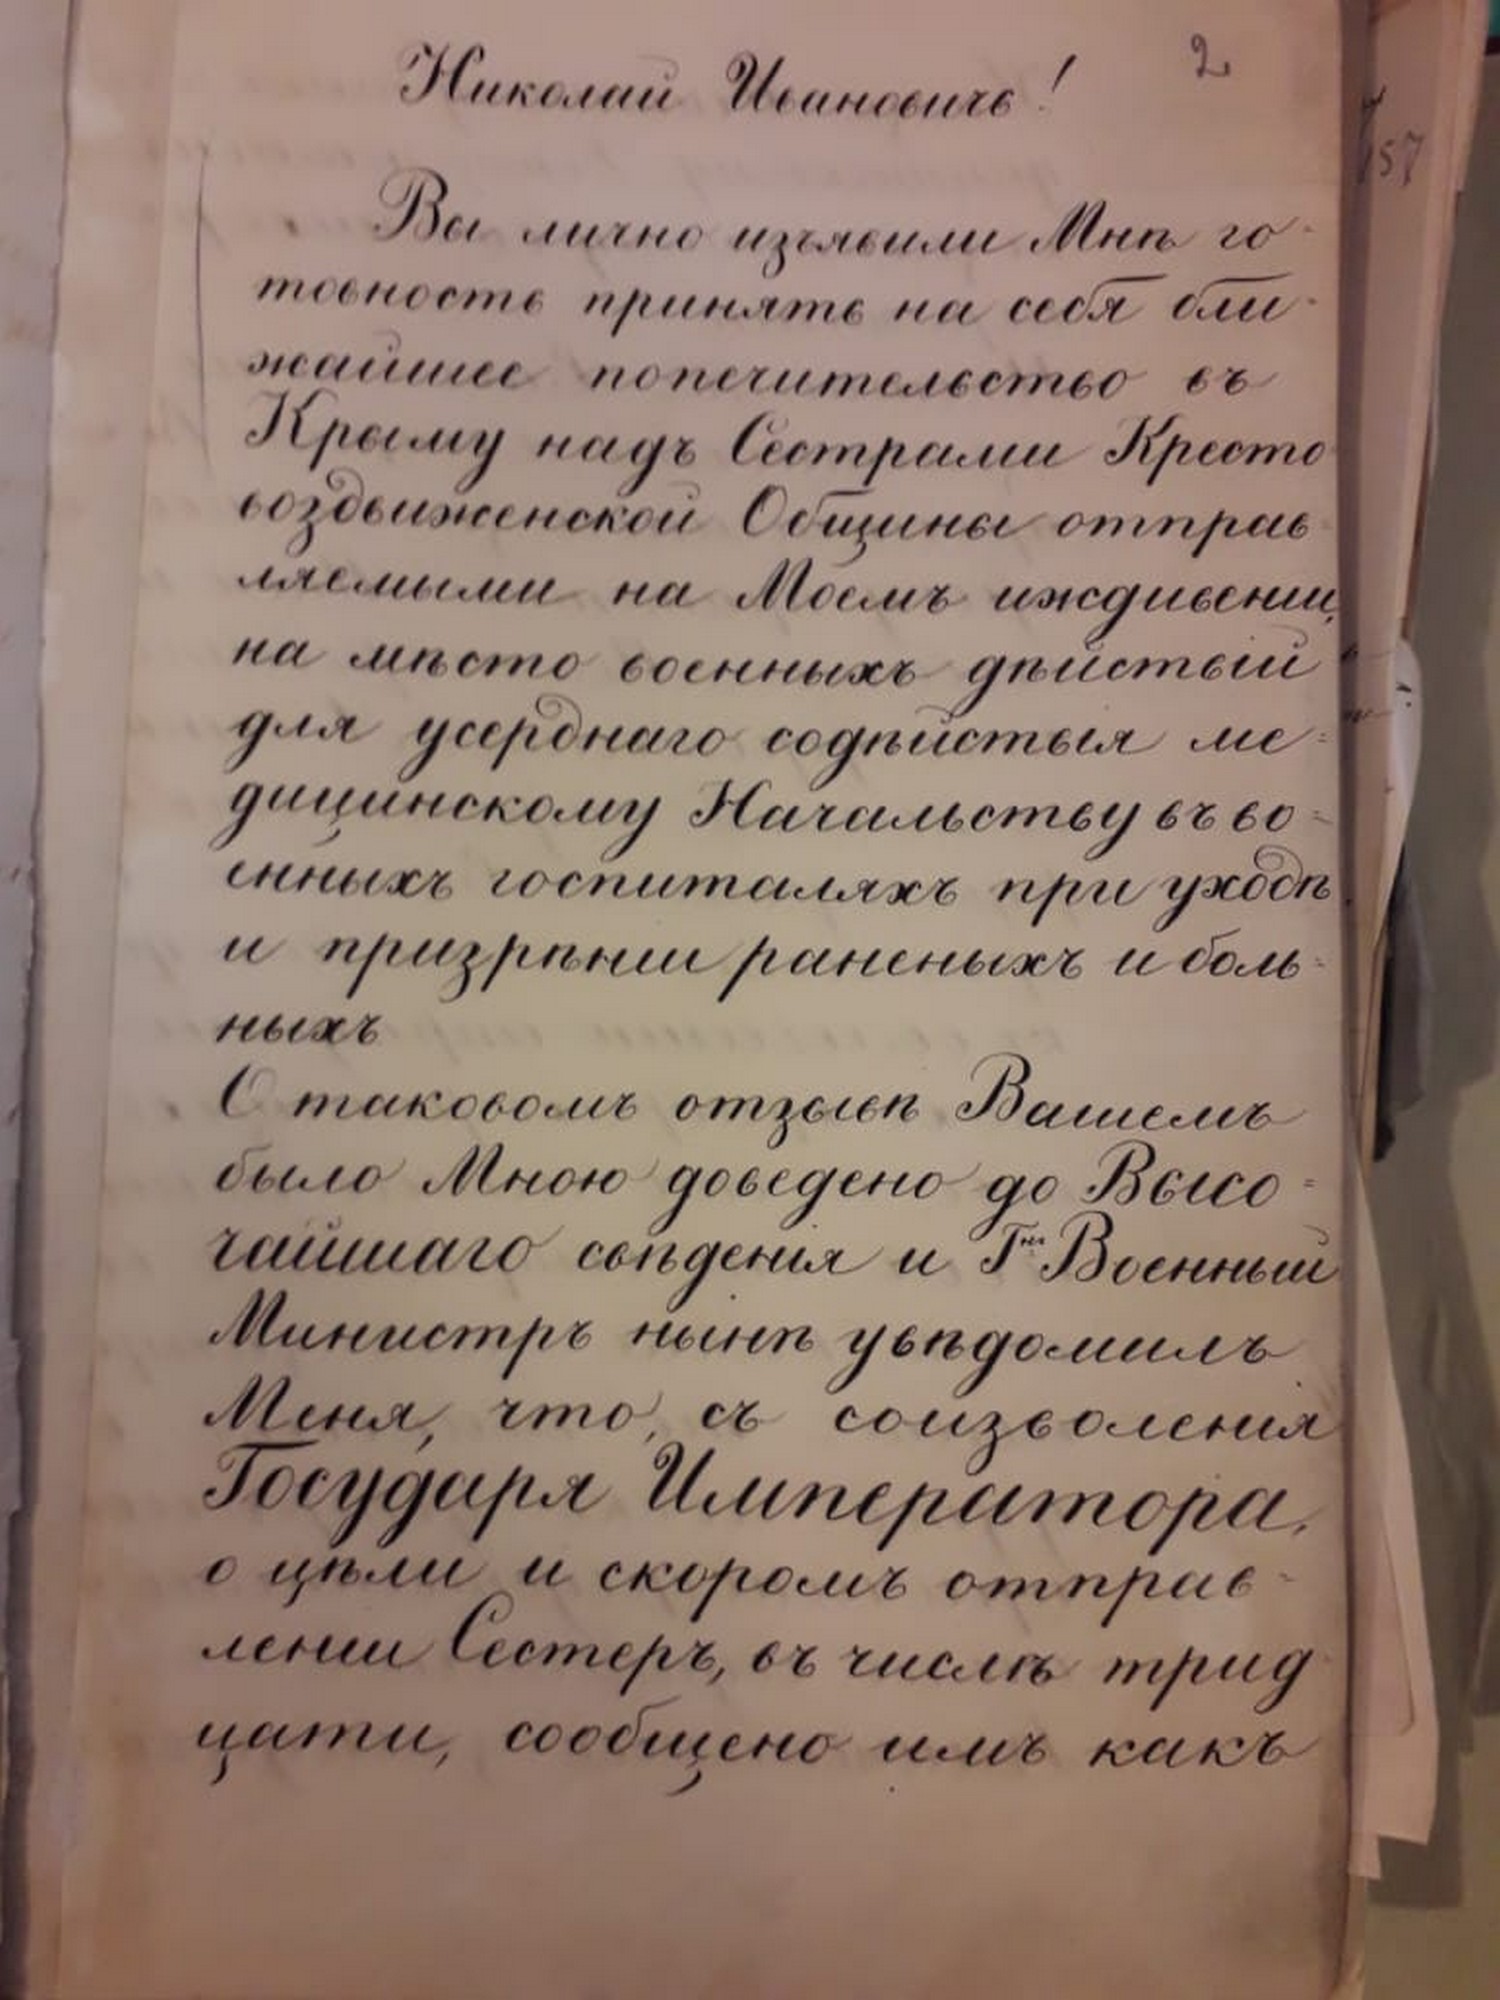 2
Николай Ивановичъ!
157
Вы лично изъявили Мнѣ го-
товность принять на себя бли-
жайшее попечительство въ
Крыму надъ Сестрами Кресто
воздвиженской Общины отправ
ляемыми на Моемъ иждивении,
на мѣсто военныхъ дѣйствій
для усерднаго содѣйствія ме=
дицинскому Начальству въ во=
енныхъ госпиталяхъ при уходѣ
и призрѣнии раненыхъ и боль=
ныхъ
О таковомъ отзывѣ Вашемъ
было Мною доведено до Высо=
чайшаго свѣдения и Гнъ Военный
Министръ нынѣ увѣдомилъ
Меня, что, съ соизволения
Государя Императора,
о цѣли и скоромъ отправ=
лении Сестеръ, въ числѣ трид
цати, сообщено имъ какъ